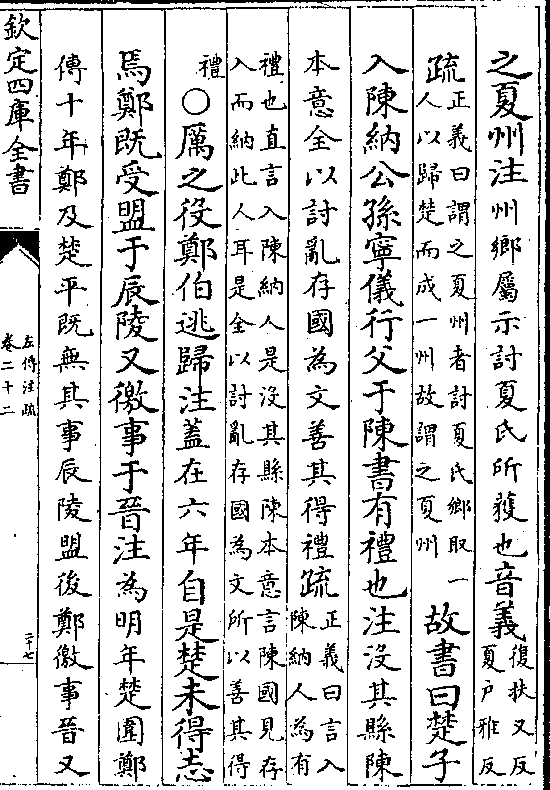 之夏州注州鄉屬示討夏氏所獲也音義復扶又反
夏戶雅反
疏正義曰謂之夏州者討夏氏鄉取一
人以歸楚而成一州故謂之夏州
故書曰楚子
入陳納公孫寧儀行父于陳書有禮也注沒其縣陳
本意全以討亂存國為文善其得禮疏正義曰言入
陳納人為有
禮也直言入陳納人是沒其縣陳本意言陳國見存
入而納此人耳是全以討亂存國為文所以善其得
禮
○厲之役鄭伯逃歸注蓋在六年自是楚未得志
焉鄭既受盟于辰陵又徼事于晉注為明年楚圍鄭
傳十年鄭及楚平既無其事辰陵盟後鄭徼事晉又
欽定四庫全書
左傳注疏
卷二十二
二十七